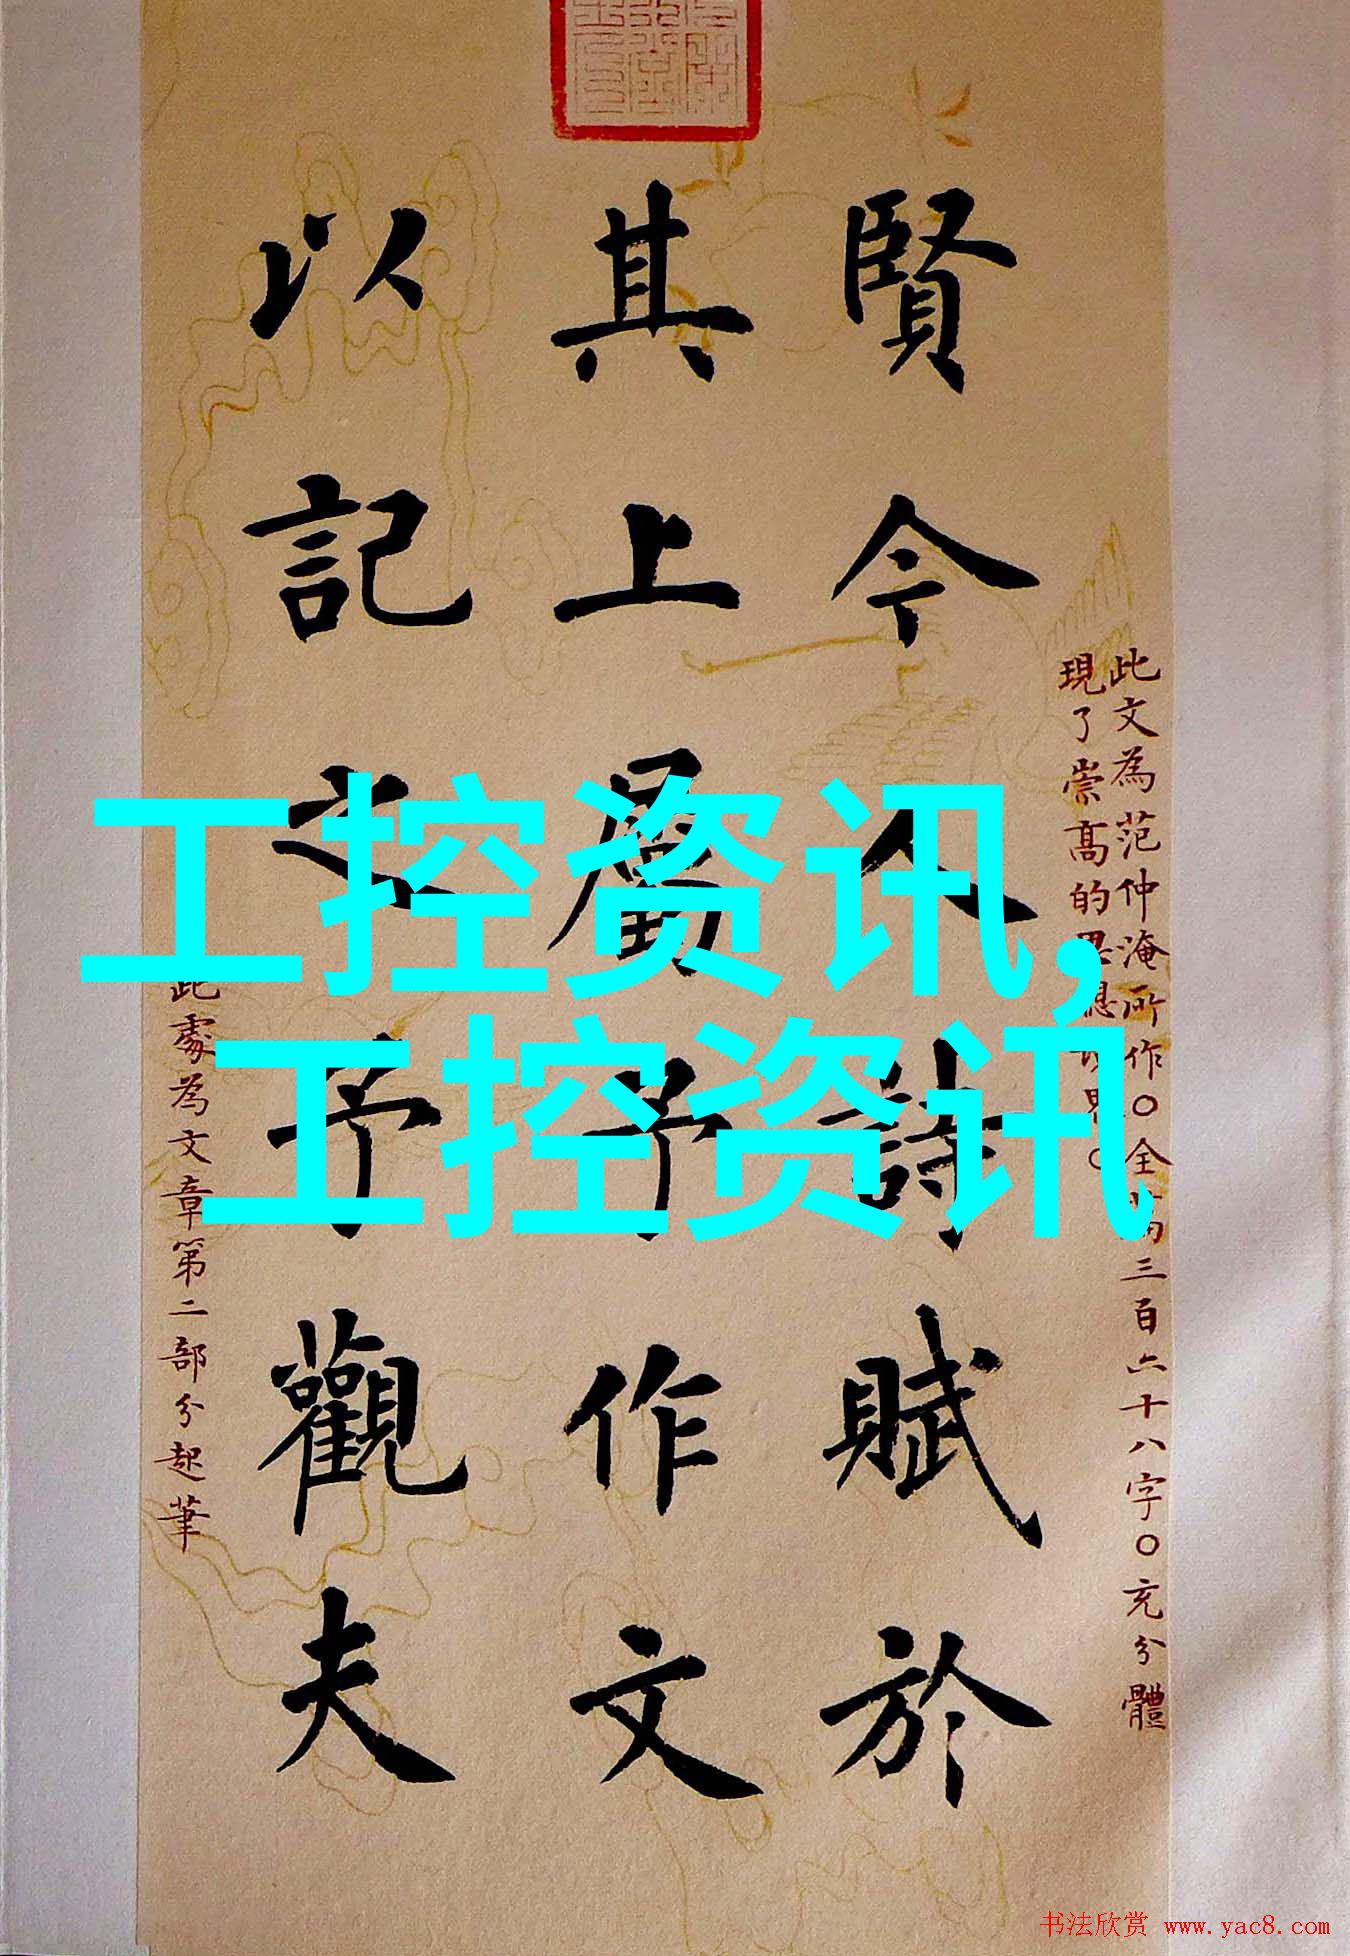 賢今人詩賦於
其上屬予作文
以記之予觀夫
此文為范仲淹所作○全篇三百六十八字○充分體
現了崇高的思想境界○
此處為文章第二部分起筆
工控资讯，
工控资讯
书法欣赏 www.yac8.com